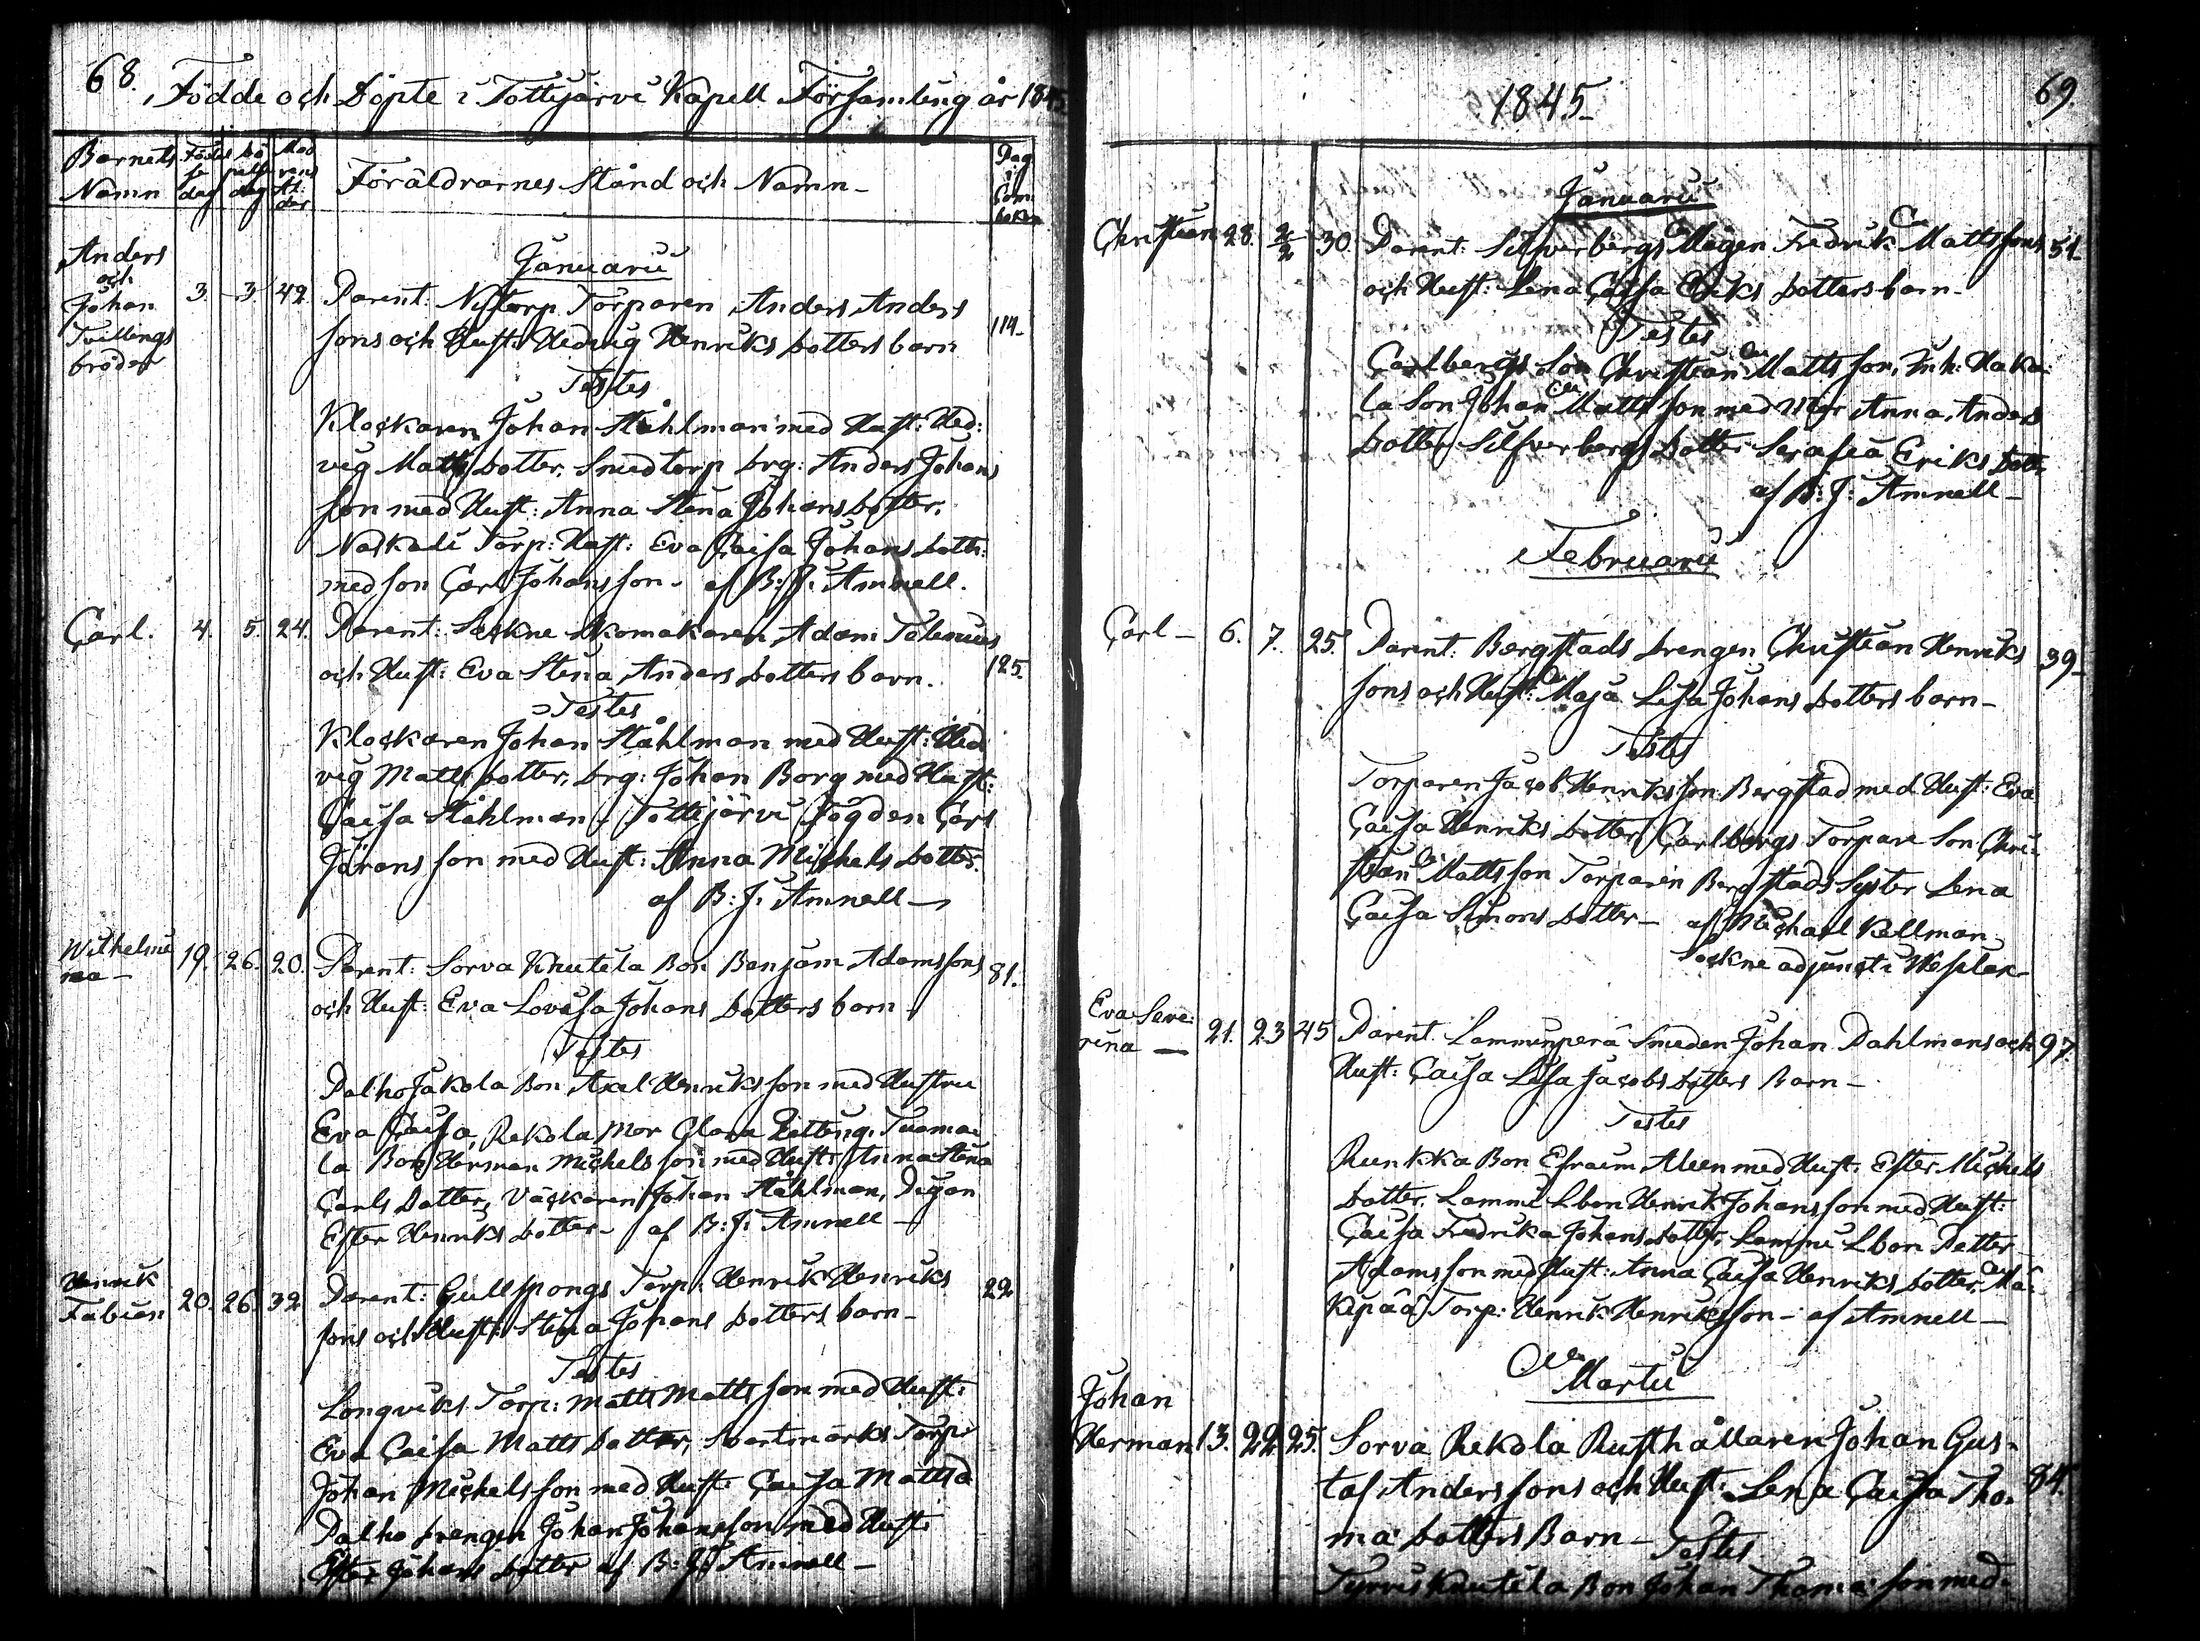 68.
Födde och Döpte i Tottijärvi Kapell Församling år 1845
Barnets Namn
Födelse dag
Döpelse dag
Modrens Ålder
Föräldrarnes Stånd och Namn-
Pag i Com. boken
Januarii
Anders
och
Johan
Tvillings
bröder
3. 3. 42. Parent: Nytorp Torparen Anders Anders
sons och Hust: Hedvig Henriks dotters barn
114-
Testes
Klockaren Johan Ståhlman med Hust: Hed:
vig Matts dotter, Smedtorp drg: Anders Johans
son med Hust: Anna Stina Johans dotter,
Naskali Torp: Hust: Eva Caisa Johans dott:
med son Carl Johansson- af B: J: Amnell.
Carl. 4. 5. 24. Parent: Sockne Skomakaren Adam
och Hust: Eva Stina Anders dotters barn.
125.
Testes
Klockaren Johan Ståhlman med Hust: Hed
vig Matts dotter, drg: Johan Borg med Hust:
Caisa Ståhlman, Tottijärvi Fogden Carl
Görans son med Hust: Anna Michels dotter.
af B: J: Amnell-
Wilhelmi
na- 19. 26. 20. Parent: Sorva Knutila Bon Benjam Adamssons 81.
och Hust: Eva Lovisa Johans dotters barn-
Testes
Palho Jakola Bon Axel Henriksson med Hustru
Eva Caisa, Rekola Mor Clara Tuoma
la Bon Herman Michels son med Hust: Anna Stina
Carls Dotter, Väckaren Johan Ståhlman, Pigan
Ester Henriks dotter- af B: J: Amnell-
Henrik
Fabian 20. 26. 32 Parent: Gullspongs Torp: Henrik Henriks 22
sons och Hust: Stina Johans dotters barn-
Testes
Longviks Torp: Matts Mattsson med Hust:
Eva Caisa Matts dotter, Svartmarks Torp:
Johan Michelsson med Hust: Caisa Matts d
Palho drengen Johan Johansson med Hust:
Ester Johans dotter af B: J: Amnell-
1845
69.
Januarii
Christian 28. 2/2 30. Parent: Silfverbergs Mågen Fredrik Mattssons 51-
och Hust: Lena Caisa Eriks dotters barn-
Testes
Carlbergs Son Christian Mattsson, Inh: Haka
la Son Johan Mattsson med Mor Anna Anders
dotter, Silfverbergs Dotter Serafia Eriks dott:
af B: J: Amnell-
Februarii
Carl- 6. 7. 25. Parent: Bergstads drengen Christian Henriks 39-
sons och Hust: Maja Lisa Johans dotters barn-
Testes
Torparen Jacob Henriksson Bergstad med Hust: Eva
Caisa Henriks dotter, Carlbergs Torpare Son Chri-
stian Mattsson Torparen Bergstads Syster Lena
Caisa Simons dotter- af Michael Kellman
Sockne adjunct i Wesilax-
Eva Seve:
rina - 21. 23 45 Parent. Lamminperä Smeden Johan Dahlmans och 97.
Hust: Caisa Lisa Jacobs dotters Barn-
Testes
Runkka Bon Efraim Aleen med Hust. Ester Michels
dotter. Lammi Lbon Henrik Johansson med Hust:
Caisa Fredrika Johans dotter, Lammi Lbon Petter
Adamsson med Hust: Anna Caisa Henriks dotter, Mä-
kipää Torp: Henrik Henriksson- af Amnell-
Martii
Johan
Herman 13. 22. 25. Sorva Rekola Rusthållaren Johan Gus-
taf Anderssons och Hust. Lena Caisa Tho- 84.
mæ dotters Barn-
Testes
Tyrvis Knutila Bon Johan Thomæ son med